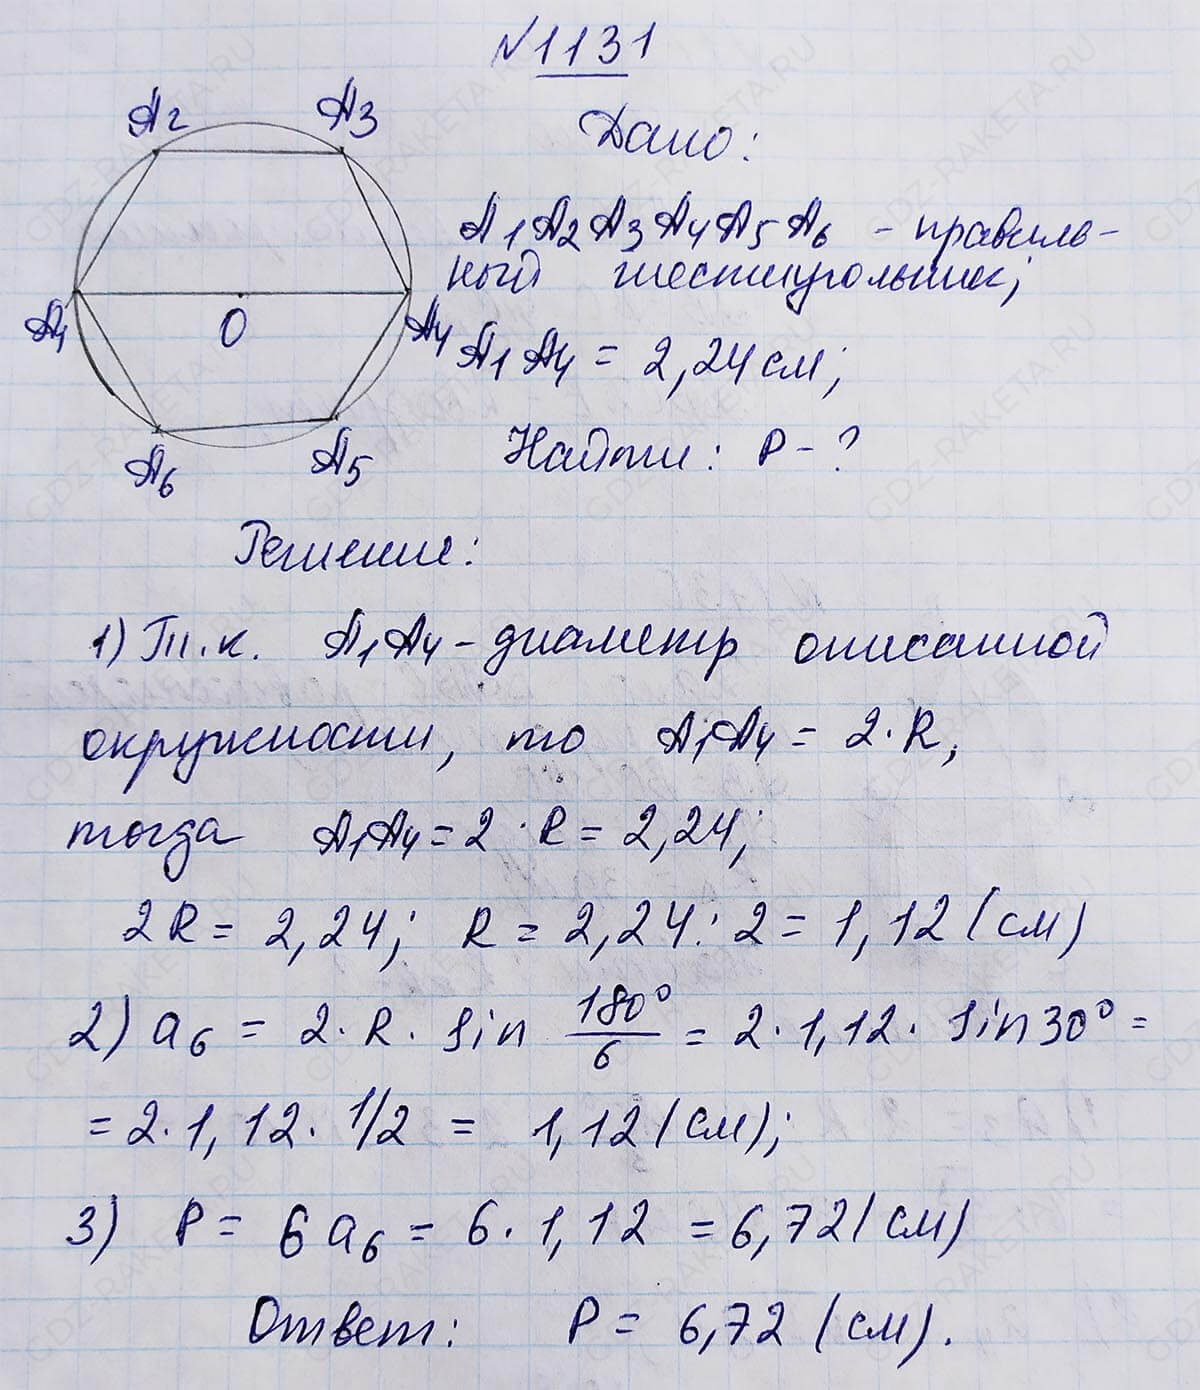 №1131
A2 A3
Дано:
A1A2A3A4A5A6 - правиль-
ный шестиугольник;
A1 O A4
A1A4 = 2,24 см;
Найти: P - ?
A6 A5
Решение:
1) Т.к. A1A4 - диаметр описанной
окружности, то A1A4 = 2·R,
тогда A1A4 = 2·R = 2,24;
2R = 2,24; R = 2,24:2 = 1,12 (см)
2) a6 = 2·R·sin 180°/6 = 2·1,12·sin30° =
= 2·1,12·1/2 = 1,12 (см);
3) P = 6a6 = 6·1,12 = 6,72 (см)
Ответ: P = 6,72 (см).
GDZ-RAKETA.RU